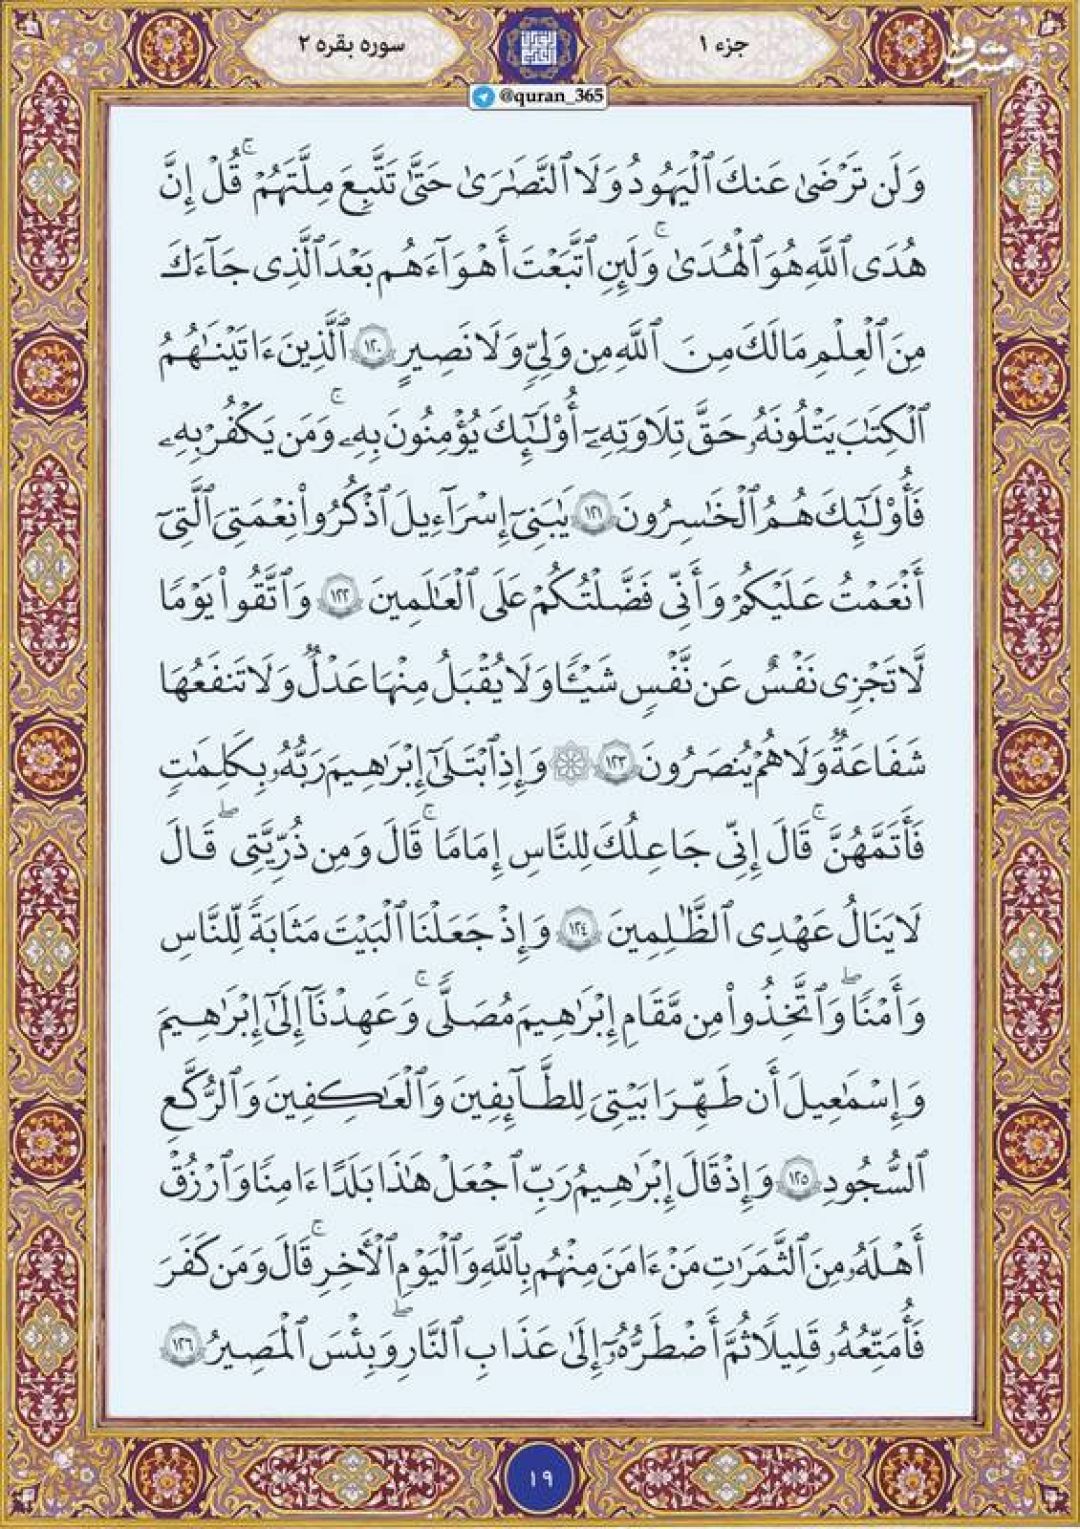 جزء ۱
سوره بقره ۲
@quran_365
وَلَن تَرْضَىٰ عَنكَ ٱلْيَهُودُ وَلَا ٱلنَّصَٰرَىٰ حَتَّىٰ تَتَّبِعَ مِلَّتَهُمْ ۗ قُلْ إِنَّ
هُدَى ٱللَّهِ هُوَ ٱلْهُدَىٰ ۗ وَلَئِنِ ٱتَّبَعْتَ أَهْوَآءَهُم بَعْدَ ٱلَّذِى جَآءَكَ
مِنَ ٱلْعِلْمِ مَا لَكَ مِنَ ٱللَّهِ مِن وَلِىٍّ وَلَا نَصِيرٍ ۝١٢٠ ٱلَّذِينَ ءَاتَيْنَٰهُمُ
ٱلْكِتَٰبَ يَتْلُونَهُۥ حَقَّ تِلَاوَتِهِۦٓ أُو۟لَٰٓئِكَ يُؤْمِنُونَ بِهِۦ ۗ وَمَن يَكْفُرْ بِهِۦ
فَأُو۟لَٰٓئِكَ هُمُ ٱلْخَٰسِرُونَ ۝١٢١ يَٰبَنِىٓ إِسْرَٰٓءِيلَ ٱذْكُرُوا۟ نِعْمَتِىَ ٱلَّتِىٓ
أَنْعَمْتُ عَلَيْكُمْ وَأَنِّى فَضَّلْتُكُمْ عَلَى ٱلْعَٰلَمِينَ ۝١٢٢ وَٱتَّقُوا۟ يَوْمًا
لَّا تَجْزِى نَفْسٌ عَن نَّفْسٍ شَيْـًٔا وَلَا يُقْبَلُ مِنْهَا عَدْلٌ وَلَا تَنفَعُهَا
شَفَٰعَةٌ وَلَا هُمْ يُنصَرُونَ ۝١٢٣ ۞ وَإِذِ ٱبْتَلَىٰٓ إِبْرَٰهِيمَ رَبُّهُۥ بِكَلِمَٰتٍ
فَأَتَمَّهُنَّ ۖ قَالَ إِنِّى جَاعِلُكَ لِلنَّاسِ إِمَامًا ۖ قَالَ وَمِن ذُرِّيَّتِى ۖ قَالَ
لَا يَنَالُ عَهْدِى ٱلظَّٰلِمِينَ ۝١٢٤ وَإِذْ جَعَلْنَا ٱلْبَيْتَ مَثَابَةً لِّلنَّاسِ
وَأَمْنًا ۖ وَٱتَّخِذُوا۟ مِن مَّقَامِ إِبْرَٰهِيمَ مُصَلًّى ۖ وَعَهِدْنَآ إِلَىٰٓ إِبْرَٰهِيمَ
وَإِسْمَٰعِيلَ أَن طَهِّرَا بَيْتِىَ لِلطَّآئِفِينَ وَٱلْعَٰكِفِينَ وَٱلرُّكَّعِ
ٱلسُّجُودِ ۝١٢٥ وَإِذْ قَالَ إِبْرَٰهِيمُ رَبِّ ٱجْعَلْ هَٰذَا بَلَدًا ءَامِنًا وَٱرْزُقْ
أَهْلَهُۥ مِنَ ٱلثَّمَرَٰتِ مَنْ ءَامَنَ مِنْهُم بِٱللَّهِ وَٱلْيَوْمِ ٱلْءَاخِرِ ۖ قَالَ وَمَن كَفَرَ
فَأُمَتِّعُهُۥ قَلِيلًا ثُمَّ أَضْطَرُّهُۥٓ إِلَىٰ عَذَابِ ٱلنَّارِ ۖ وَبِئْسَ ٱلْمَصِيرُ ۝١٢٦
١٩